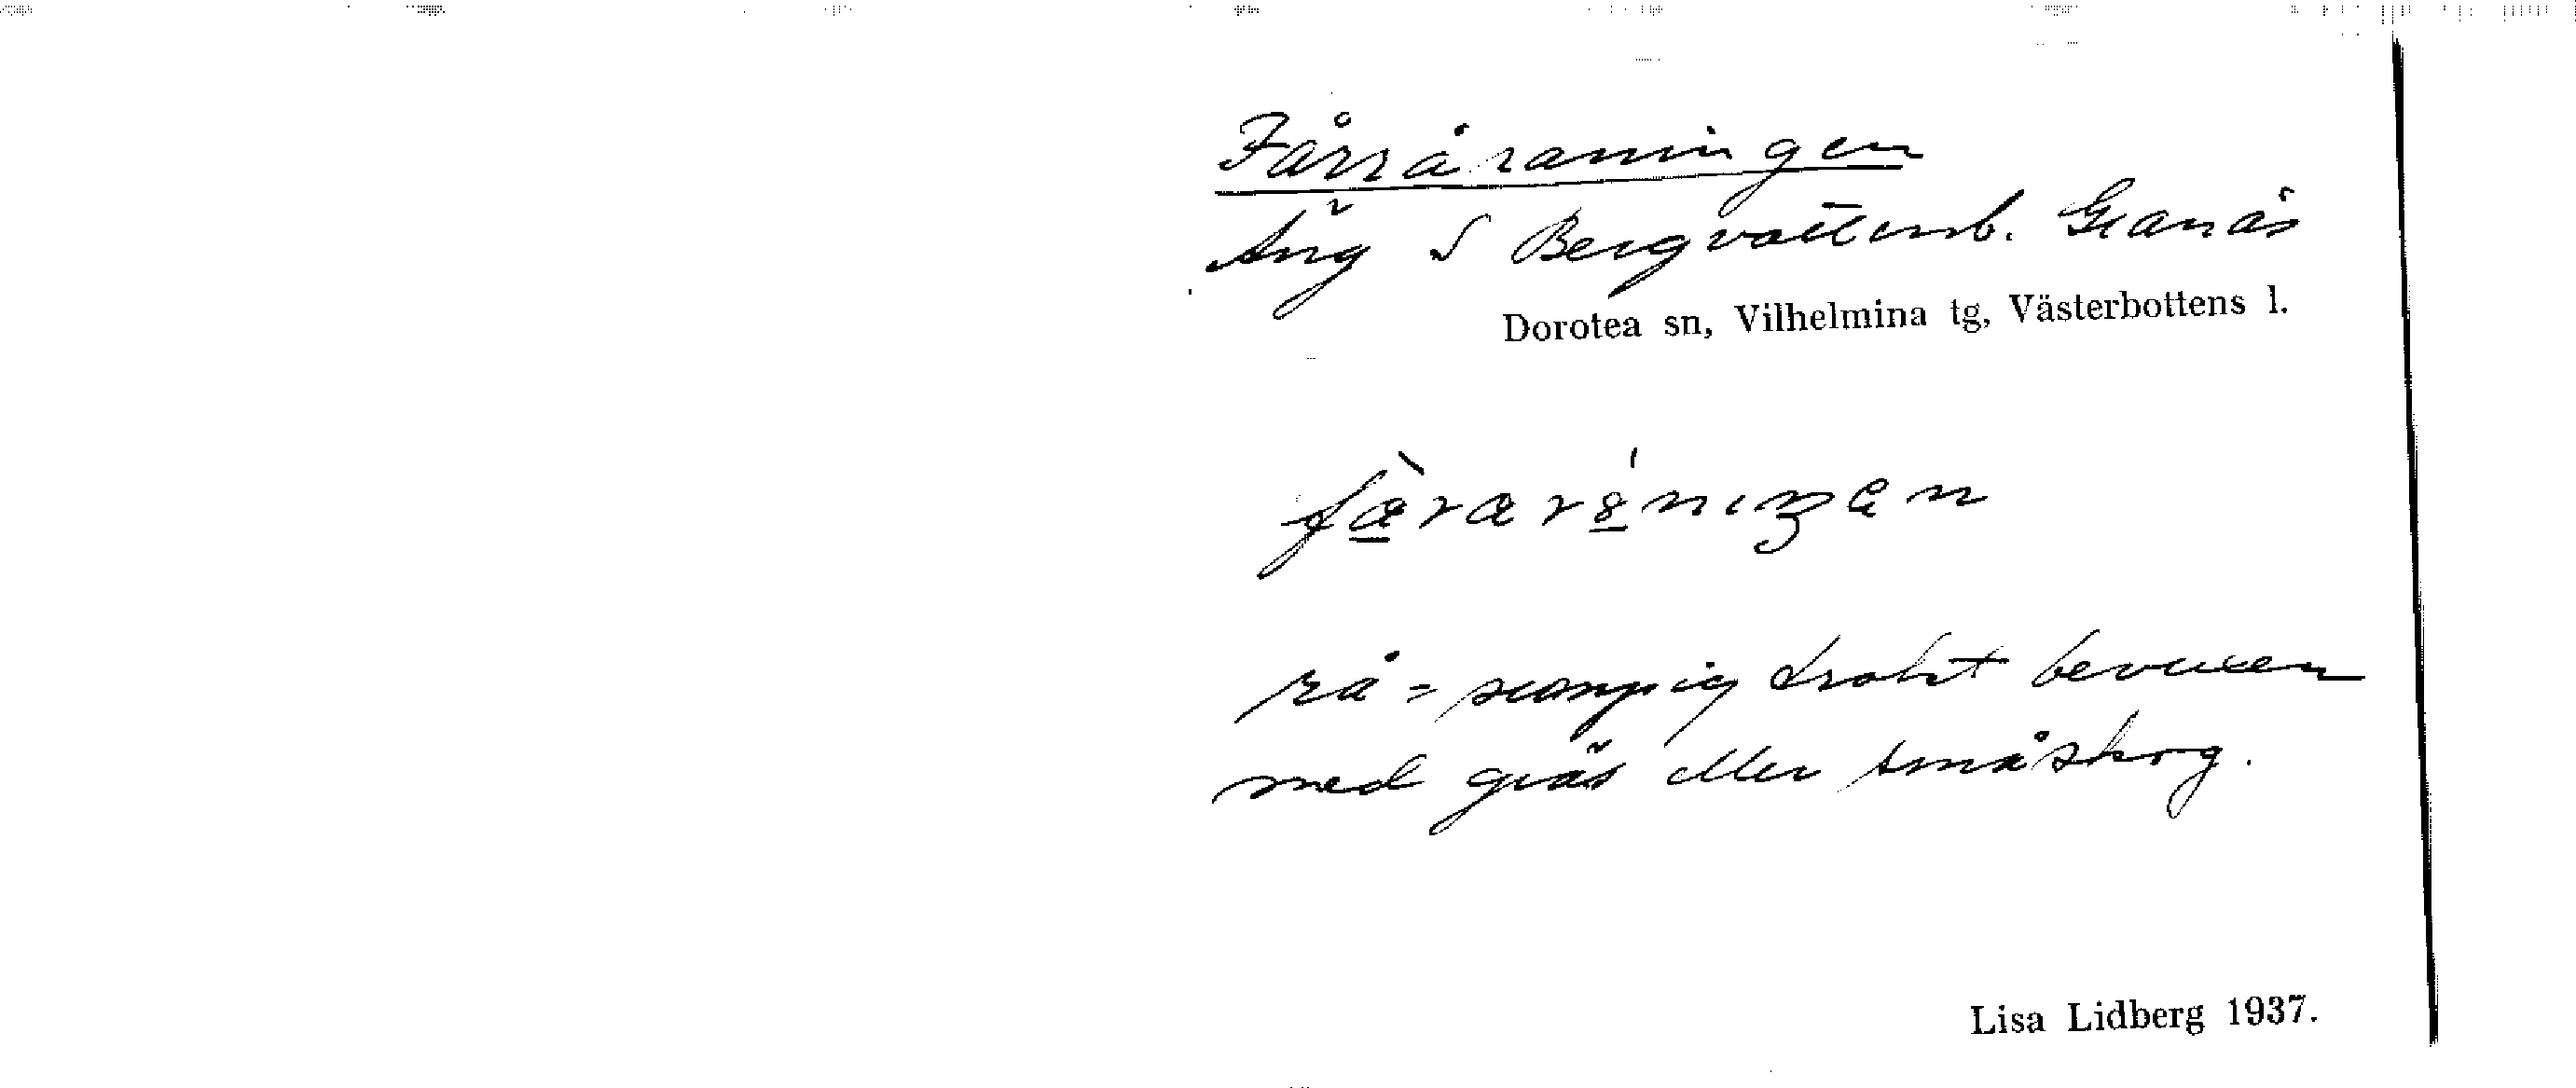 Fårråraningen
Äng S Bergvattenb. Granås
Dorotea sn, Vilhelmina tg, Västerbottens l.
rå = svampig trakt bevuxen
med gräs eller småskog.
Lisa Lidberg 1937.